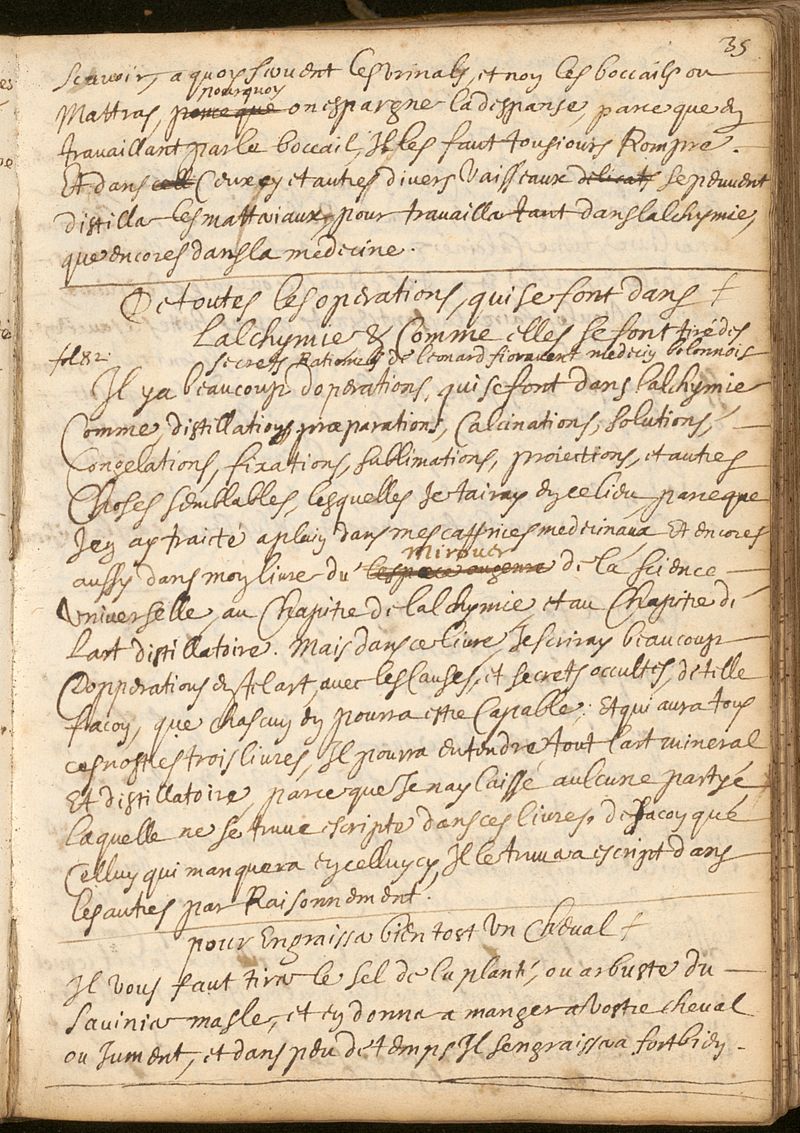 35
Scavoir, a quoy servent les vrinals, et non les boccails ou
pourquoy
Mattras, parce que on espargne la despanse, parce que en
travaillant par le boccail, Il les faut tousiours Rompre.
Et dans cell Ceux cy et autres divers Vaisseaux delicats se peuvent
distiller les mattaiaux, pour travailler tant dans lalchymie,
que encores dans la medecine.
De toutes les operations, qui se font dans
Lalchymie & Comme elles se font tiré des
fol 82 secrets Rationels de leonard fioravent medecin bolonnois
Il y a beaucoup doperations, qui se font dans lalchymie
Comme, distillations, præparations, Calcinations, solutions,
Congelations, fixations, sublimations, proiections, et autres
Choses semblables, lesquelles Je tairay en ce lieu parce que
Jen ay traicté a plain dans mes caprices medicinaux Et encores
mirouer
aussy dans mon livre du de la science
Vniverselle, au Chapitre de lalchymie et au Chapitre de
Lart distillatoire. Mais dans ce livre Jescriray beaucoup
Dopperations de tel art, avec les Causes, et secrets occultes, de telle
facon, que chascun en pourra estre Capable: Et qui aura tous
ces nostres trois livres, Il pourra entendre tout lart mineral
Et distillatoire, parce que Je nay laissé aulcune partye
laquelle ne se truve escripte dans ces livres. de facon que
Celluy qui manquera en celluy cy, Il le truvera escript dans
les autres par Raisonnement.
pour Engraisser bien tost Vn Cheval
Il vous faut tirer le sel de la planté, ou arbuste du
Savinier masle, et en donner a manger a Vostre cheval
ou Jument, et dans peu de temps Il sengraissera fort bien.